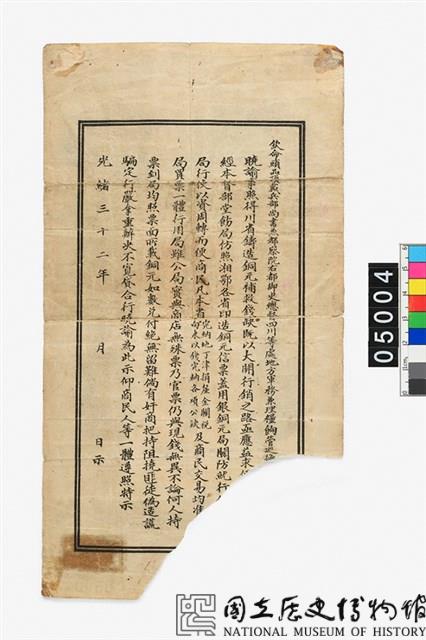 欽命頭品頂戴兵部尚書兼都察院右都御史總督四川等處地方軍務兼理糧餉管巡撫
曉諭事照得川省鑄造銅元補救錢缺既以大開行銷之路亟應益求
經本督部堂飭局仿照湘鄂各省印造銅元信票蓋用銀銅元局關防就行
局行使以資周轉而便商民凡本省完納地丁津捐釐金關稅向來以錢完納各項公款及商民交易均准
局買票一體行用局雖公局實與商店無殊票乃官票仍與現錢無異不論何人持
票到局均照票面所載銅元如數兌付絕無留難倘有奸商把持阻撓匪徒偽造謊
騙定行嚴拿重辦決不寬貸合行曉諭為此示仰商民人等一體遵照特示
光緒三十二年 月 日示
05004
國立歷史博物館
NATIONAL MUSEUM OF HISTORY